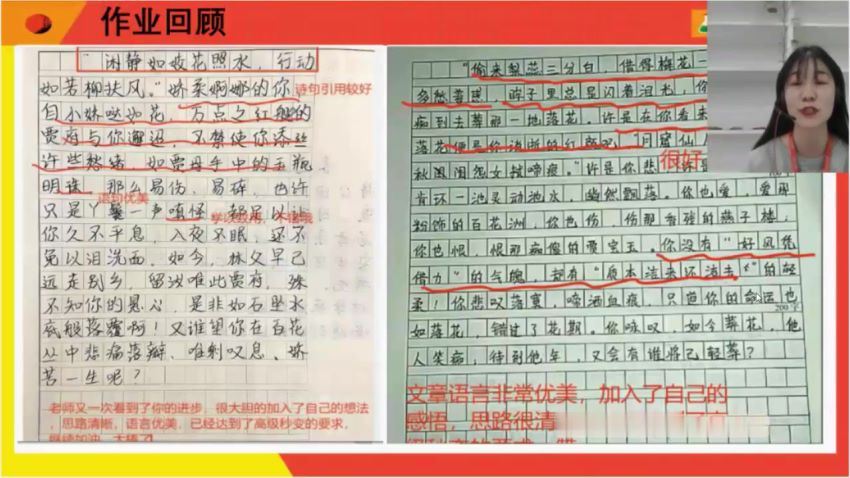 作业回顾
"闲静如姣花照水，行动
如若柳扶风。"娇柔婀娜的你，
诗句引用较好
自小妹哒如花，万点之红
贾府与你邂逅，不禁使你添丝
许些愁绪，如贾母手中的玉瓶
明珠，那么易伤，易碎，也许
语句优美
只是丫鬟一声嗔怪，都足以让
你久不平息，入夜不眠，还不
免以泪洗面。如今，林父早已
远走别乡，留汝唯此贾府，殊
不知你的恩公，是非如石坠水
底般落寞啊！又谁望你在百花
丛中悲痛落瓣，唯剩叹息、娇
苦一生呢？
老师又一次看到了你的进步，很大胆的加入了自己的想法
，思路清晰，语言优美，已经达到了高级秒变的要求，
继续加油，大棒了
"偷来梨蕊三分白，借得梅花一
多愁善感，眸子里总是闪着泪光，你
痴到去葬那一地落花。许是在你看来
落花便是你消逝的红颜 "月窟仙人
很好
秋闺怨女拭啼痕。"许是你悲
肯环一池灵动池水，幽然飘落。你也爱，爱那
粉饰的百花洲，你也伤，伤那香残的燕子楼，
你也恨，恨那痴傻的贾宝玉。你没有"好风凭
借力"的气魄，却有"质本洁来还洁去"的轻
柔！你悲叹落寞，啼洒血痕，只道你的命运也
200字
如落花，错过了花期。你咏叹，如今葬花，他
人笑痴；待到他年，又会有谁将己轻葬？
文章语言非常优美，加入了自己的
感悟，思路很清